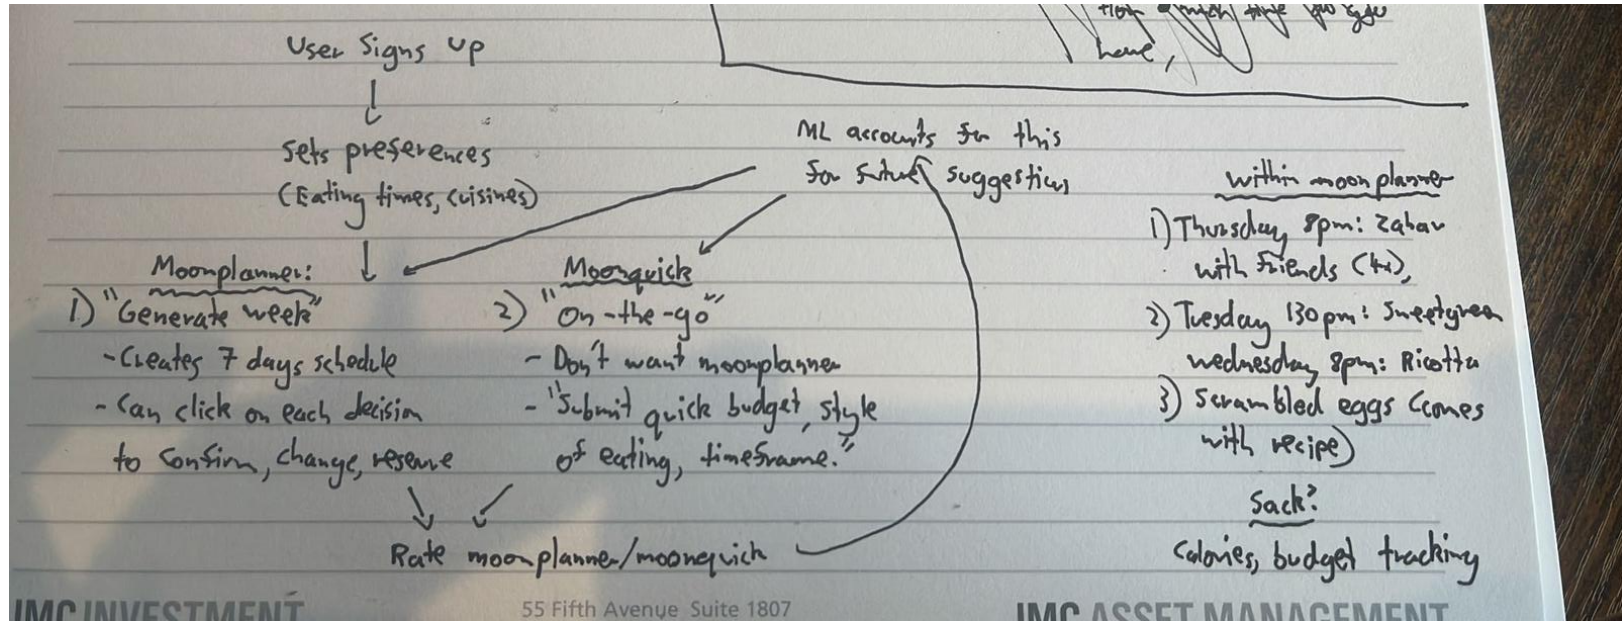 time you
have,
User Signs up
Sets preferences
(Eating times, cuisines)
ML accounts for this
for future suggestions
Moonplanner:
1) "Generate week"
- Creates 7 days schedule
- Can click on each decision
to confirm, change, reserve
Moonquick
2) "On-the-go"
- Don't want moonplanner
- "Submit quick budget, style
of eating, timeframe."
Rate moonplanner/moonquick
within moonplanner
1) Thursday 8pm: Zahav
with friends (4x),
2) Tuesday 130pm: Sweetgreen
Wednesday 8pm: Ricotta
3) Scrambled eggs (comes
with recipe)
Sack?
Calories, budget tracking
IMC INVESTMENT
55 Fifth Avenue Suite 1807
IMC ASSET MANAGEMENT